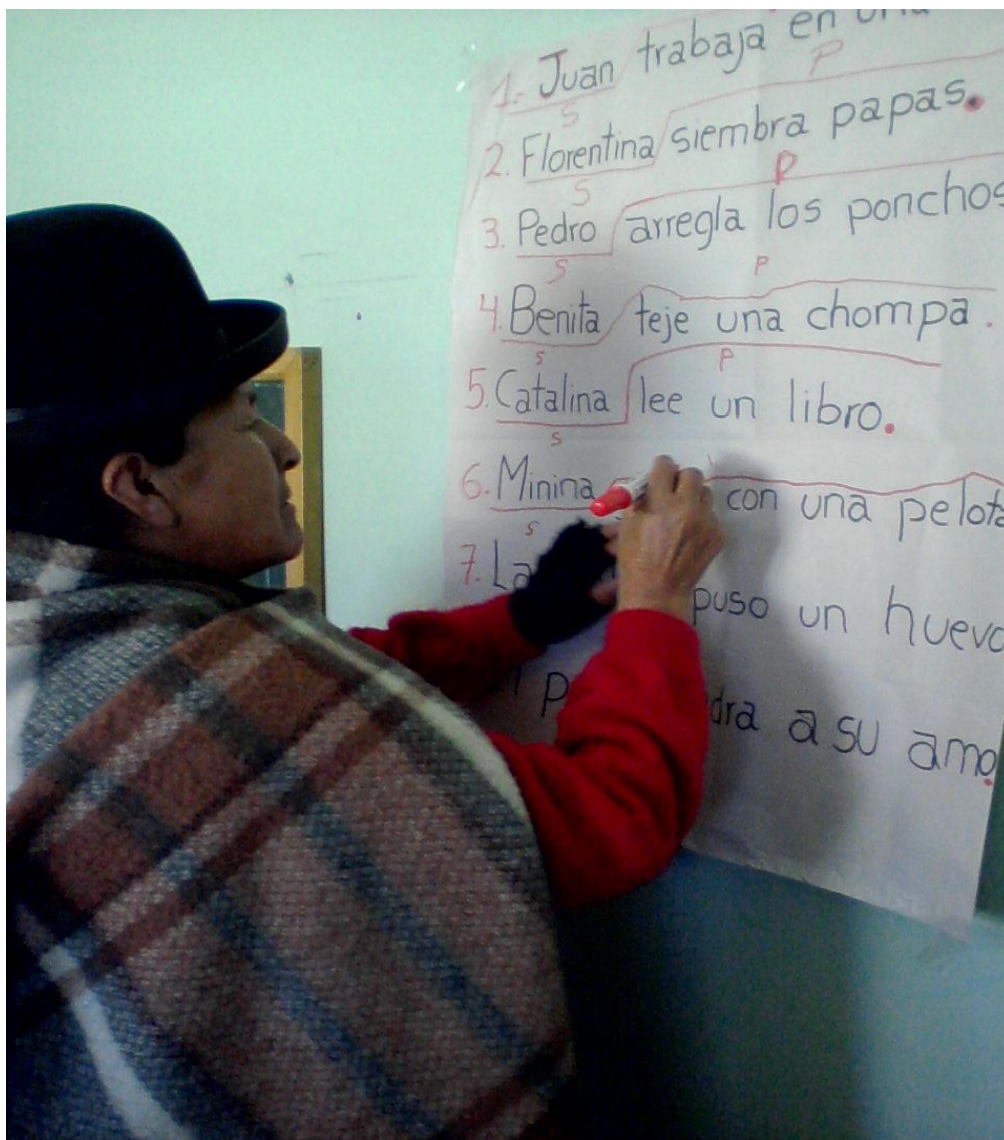 1.- Juan trabaja en
S P
2. Florentina siembra papas.
S P
3. Pedro arregla los ponchos
S P
4. Benita teje una chompa.
S P
5. Catalina lee un libro.
S
6. Minina con una pelota
S
7. La puso un huevo
a su amo.